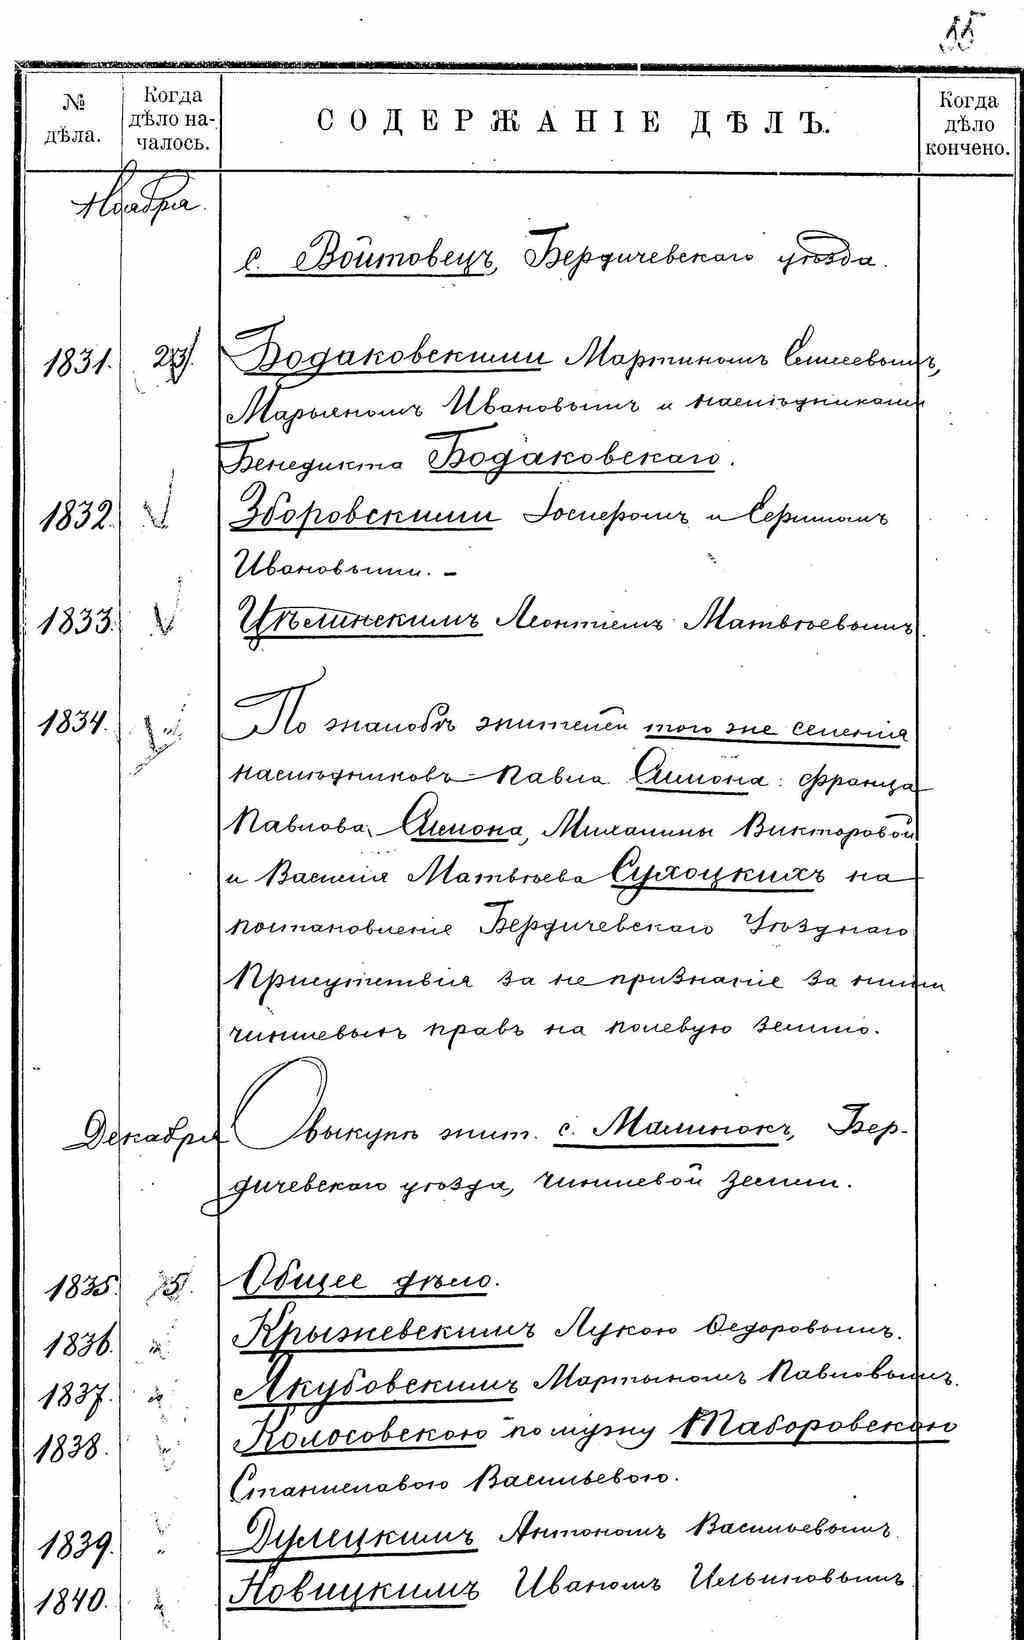 55
№ дѣла.
Когда дѣло на-чалось.
СОДЕРЖАНІЕ ДѢЛЪ.
Когда дѣло кончено.
Ноября.
с. Войтовецъ, Бердичевскаго уѣзда.
1831. 23. Бодаковскими Мартиномъ Елисеевымъ,
Марьяномъ Ивановымъ и наслѣдниками
Бенедикта Бодаковскаго.
1832. Зборовскими Іосифомъ и
Ивановыми. –
1833. Цѣлинскимъ Леонтіемъ Матвѣевымъ
1834. По жалобѣ жителей того же селенія
наслѣдниковъ Павла Симона: Франца
Павлова Симона, Михалины Викторовой
и Василія Матвѣева Сухоцкихъ на
постановленіе Бердичевскаго Уѣзднаго
Присутствія за не признаніе за ними
чиншевыхъ правъ на полевую землю.
Декабря О выкупѣ жит. с. Малинокъ, Бер-
дичевскаго уѣзда, чиншевой земли.
1835. 5. Общее дѣло.
1836. " Крыжевскимъ Лукою Федоровымъ.
1837. " Якубовскимъ Мартыномъ Павловымъ.
1838. " Колосовскою по мужу Таборовскою
Станиславою Васильевою.
1839. " Дулецкимъ Антономъ Васильевымъ.
1840. " Новицкимъ Иваномъ Ильиновымъ